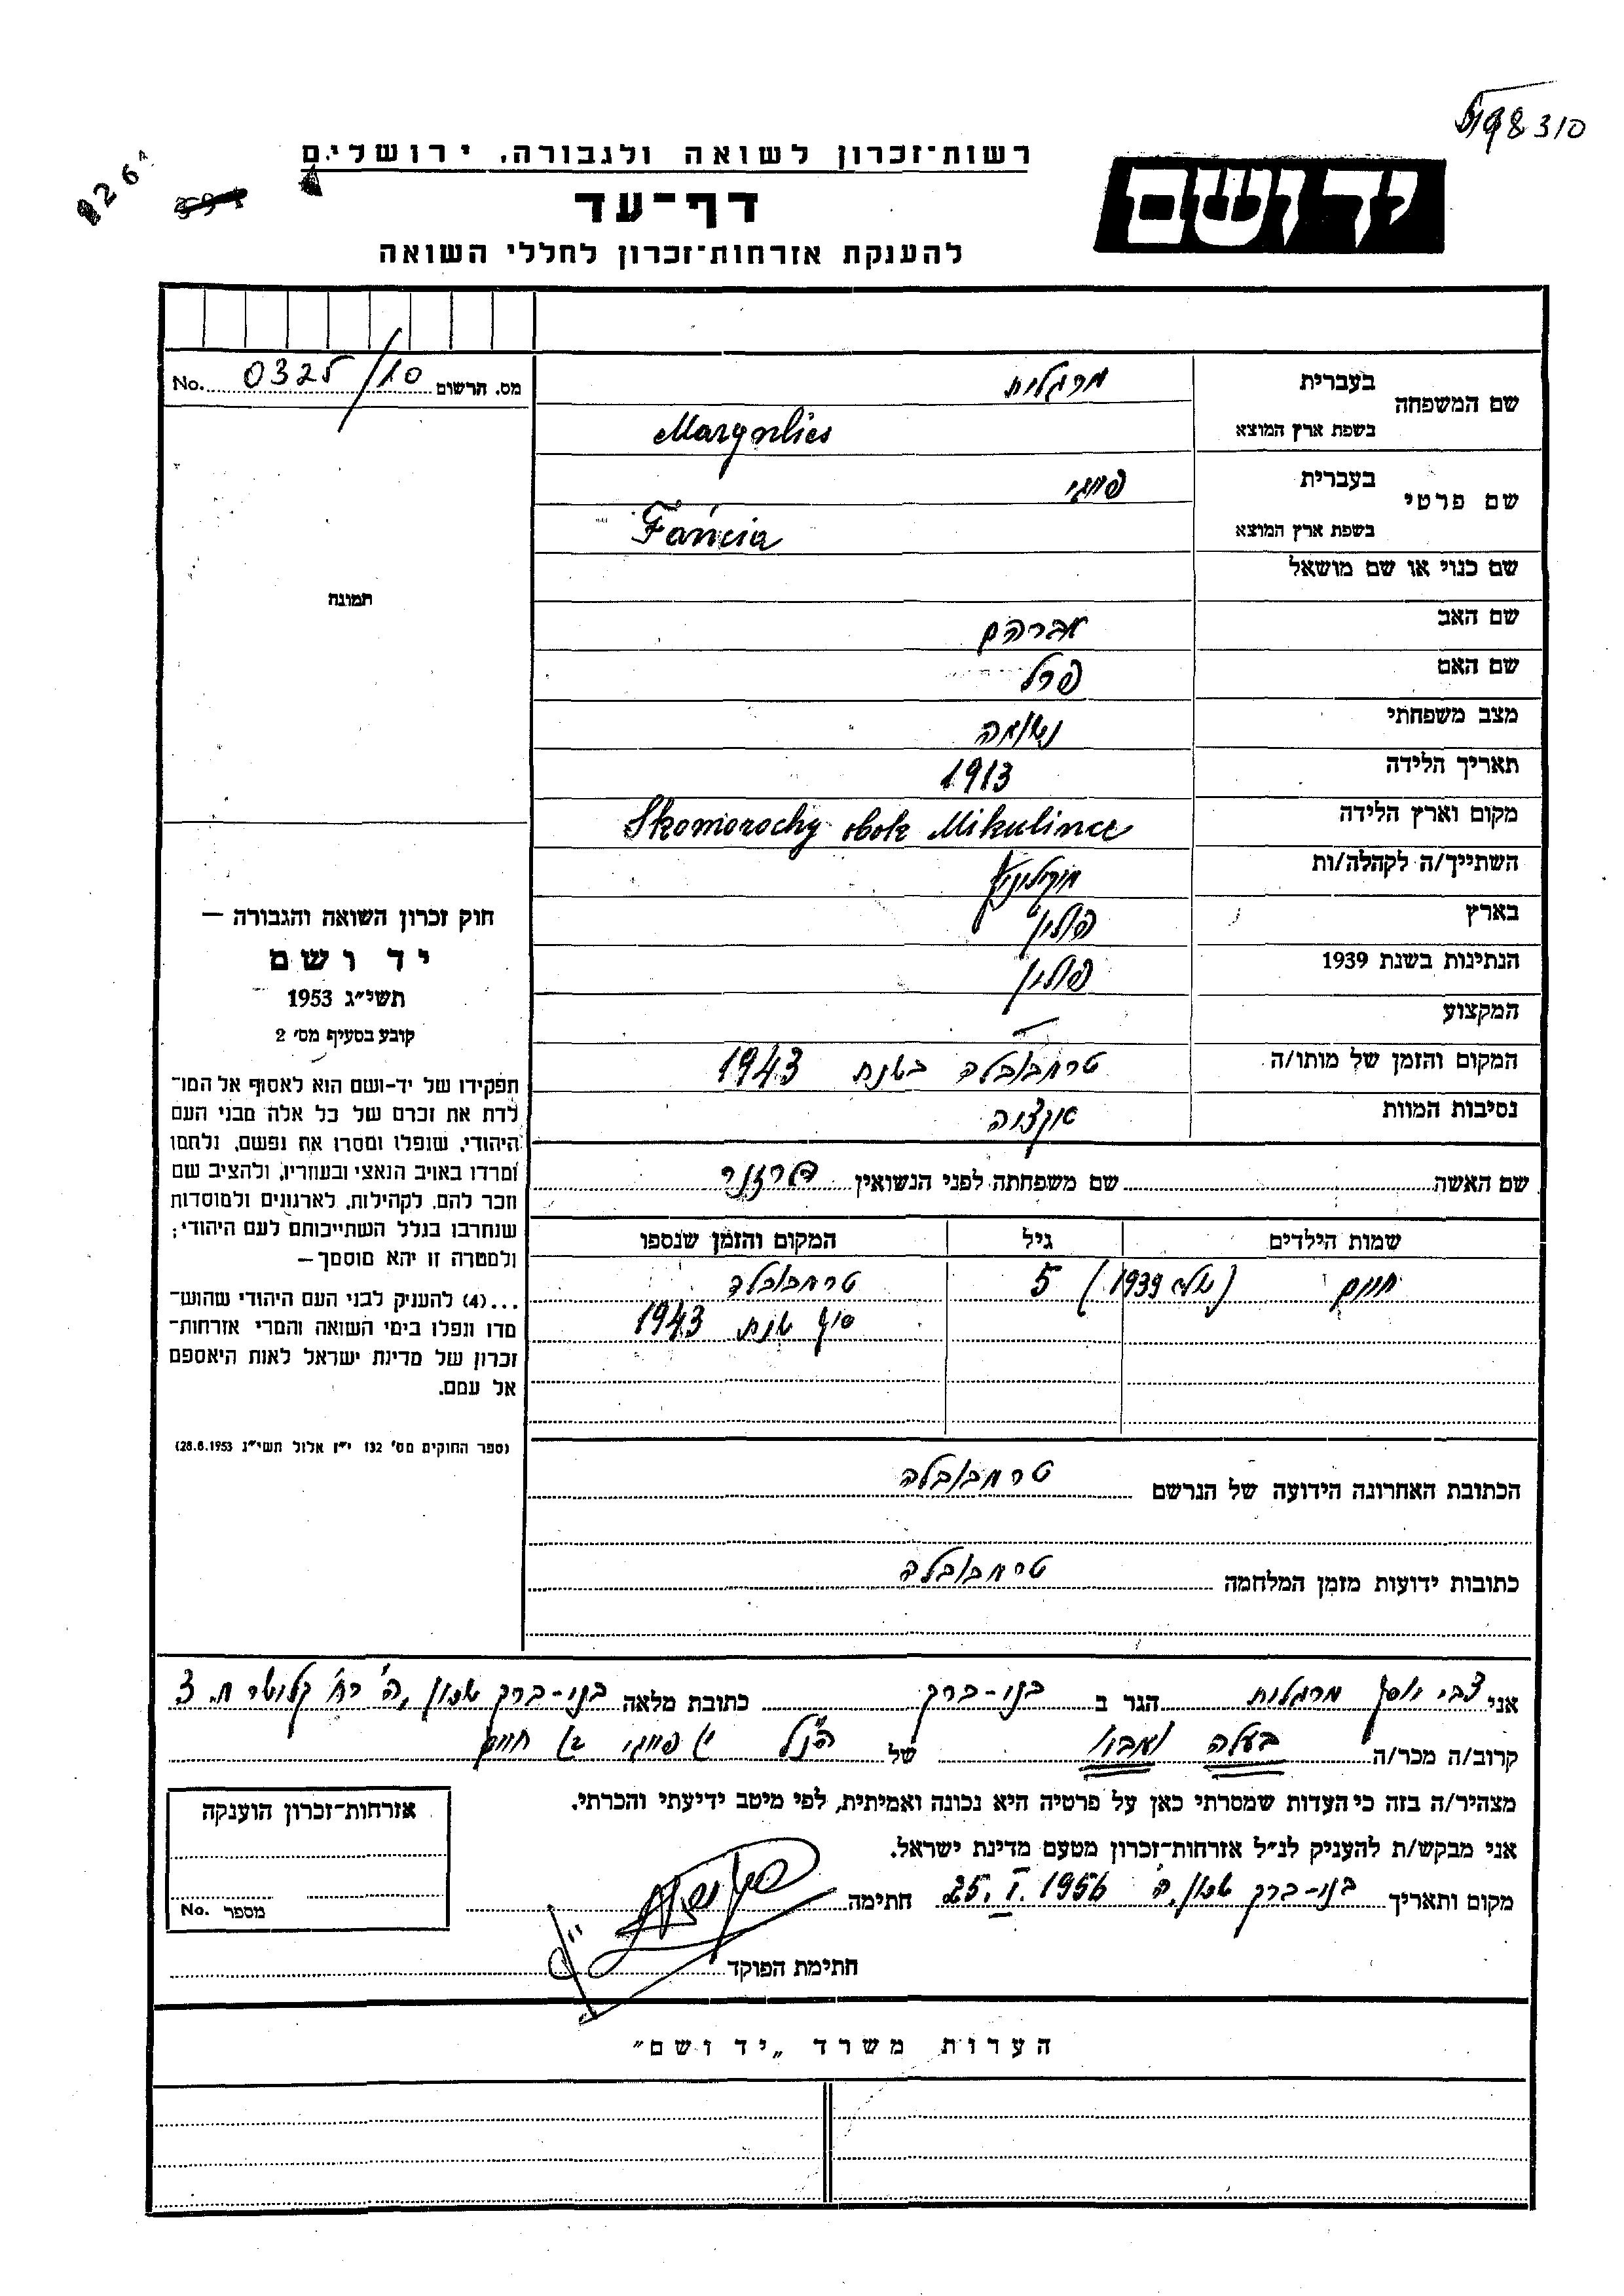 310
רשות־זכרון לשואה ולגבורה, ירושלים
ידושם
דף־עד
להענקת אזרחות־זכרון לחללי השואה
No. 0325/10 מס. הרשום
שם המשפחה
בעברית מרגלות
בשפת ארץ המוצא Margulies
שם פרטי
בעברית פייגי
בשפת ארץ המוצא Fańcia
תמונה
שם כנוי או שם מושאל
שם האב אברהם
שם האם פרל
מצב משפחתי נשואה
תאריך הלידה 1913
מקום וארץ הלידה Skomorochy obok Mikulince
השתייך/ה לקהלה/ות
בארץ פולין
הנתינות בשנת 1939 פולין
המקצוע —
המקום והזמן של מותו/ה טרמבובלה בשנת 1943
נסיבות המוות אקציה
שם האשה שם משפחתה לפני הנשואין
שמות הילדים גיל המקום והזמן שנספו
חיים (נולד 1939) 5 טרמבובלה
סוף שנת 1943
הכתובת האחרונה הידועה של הנרשם טרמבובלה
כתובות ידועות מזמן המלחמה טרמבובלה
חוק זכרון השואה והגבורה —
יד ושם
תשי״ג 1953
קובע בסעיף מס׳ 2
תפקידו של יד־ושם הוא לאסוף אל המו־
לדת את זכרם של כל אלה מבני העם
היהודי, שנפלו ומסרו את נפשם, נלחמו
ומרדו באויב הנאצי ובעוזריו, ולהציב שם
וזכר להם, לקהילות, לארגונים ולמוסדות
שנחרבו בגלל השתייכותם לעם היהודי;
ולמטרה זו יהא מוסמך —
...(4) להעניק לבני העם היהודי שהוש־
מדו ונפלו בימי השואה והמרי אזרחות־
זכרון של מדינת ישראל לאות היאספם
אל עמם.
(ספר החוקים מס׳ 132 י״ז אלול תשי״ג 28.8.1953)
אני צבי יוסף מרגלות הגר ב בני-ברק כתובת מלאה בני-ברק שכון ה׳
קרוב/ה מכר/ה בעלה ואביו של הנ״ל פייגי חיים
מצהיר/ה בזה כי העדות שמסרתי כאן על פרטיה היא נכונה ואמיתית, לפי מיטב ידיעתי והכרתי.
אני מבקש/ת להעניק לנ״ל אזרחות־זכרון מטעם מדינת ישראל.
מקום ותאריך בני-ברק שכון ה׳ 25.I.1956 חתימה
חתימת הפוקד
אזרחות־זכרון הוענקה
No. מספר
הערות משרד „יד ושם״